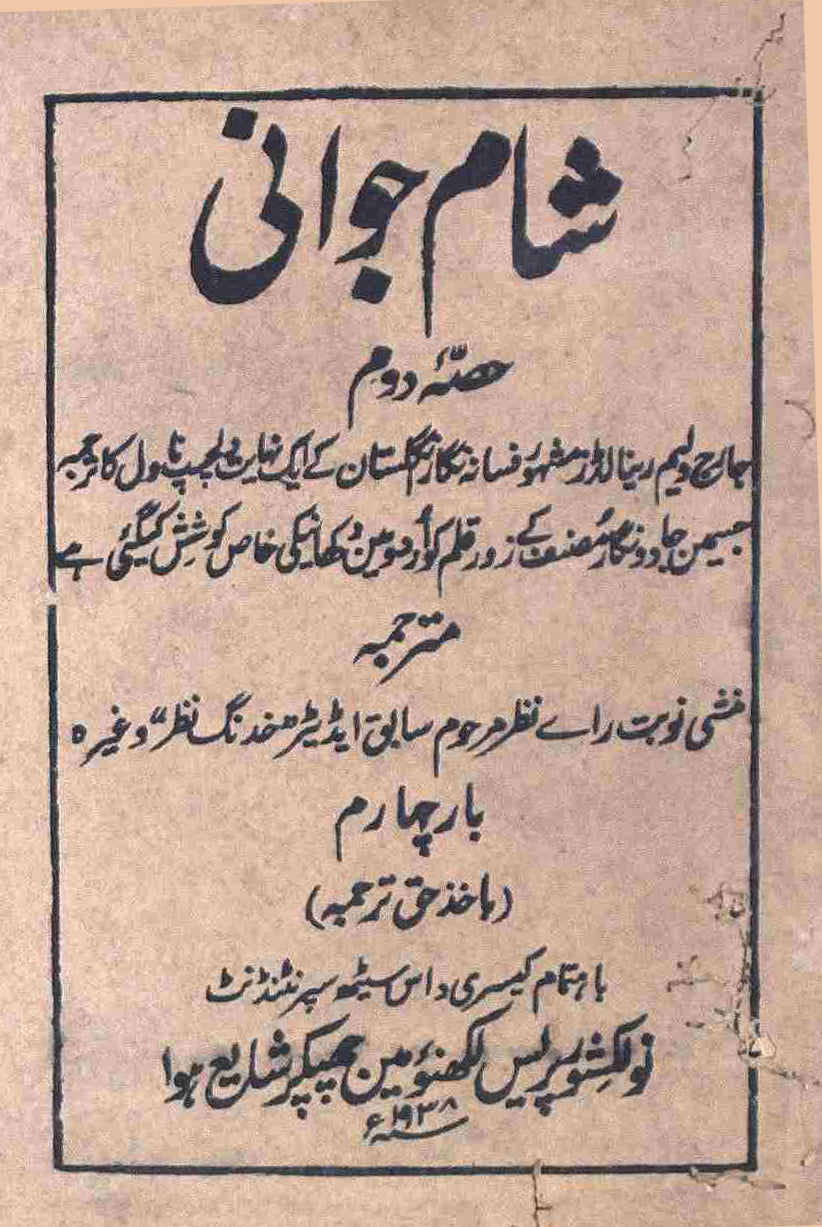 شام جوانی
حصّۂ دوم
جارج ولیم رینالڈز مشہور فسانہ نگار انگلستان کے ایک نہایت دلچسپ ناول کا ترجمہ
جسیمن جادو نگار مُصنف کے زور قلم کو اُردو مین دکھانیکی خاص کوشِش کیگئی ہے
مترجمہ
منشی نوبت راے نظر مرحوم سابق ایڈیٹر "خدنگ نظر" وغیرہ
بار چہارم
(باخذ حق ترجمہ)
باہتمام کیسری داس سیٹھ سپرنٹنڈنٹ
نولکشور پریس لکھنؤ مین چھپکر شایع ہوا
سنہ ۱۹۳۸ء